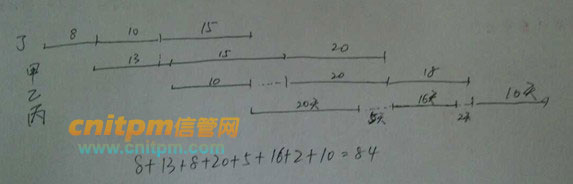 丁 8 10 15
甲 13 15 20
乙 10 20 18
丙 20天 5天 16天 2天 10天
cnitpm信管网
www.cnitpm.com
8+13+8+20+5+16+2+10=84